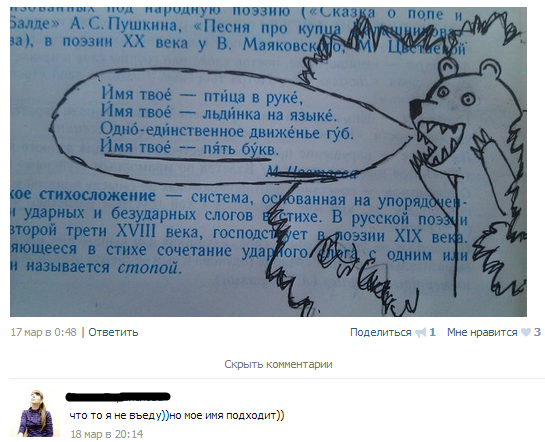 зованных под народную поэзию («Сказка о попе и
Балде» А. С. Пушкина, «Песня про купца
ва), в поэзии XX века у В. Маяковского, М. Цветаевой
И́мя твоё — пти́ца в руке́,
И́мя твоё — льди́нка на языке́.
Одно́-еди́нственное движе́нье гу́б.
И́мя твоё — пя́ть бу́кв.
М. Цветаева
кое стихосложение — система, основанная на упорядочен-
и ударных и безударных слогов в стихе. В русской поэзии
второй трети XVIII века, господствует в поэзии XIX века.
ряющееся в стихе сочетание ударного слога с одним или
и называется стопой.
17 мар в 0:48 | Ответить
Поделиться 1 Мне нравится 3
Скрыть комментарии
что то я не въеду))но мое имя подходит))
18 мар в 20:14